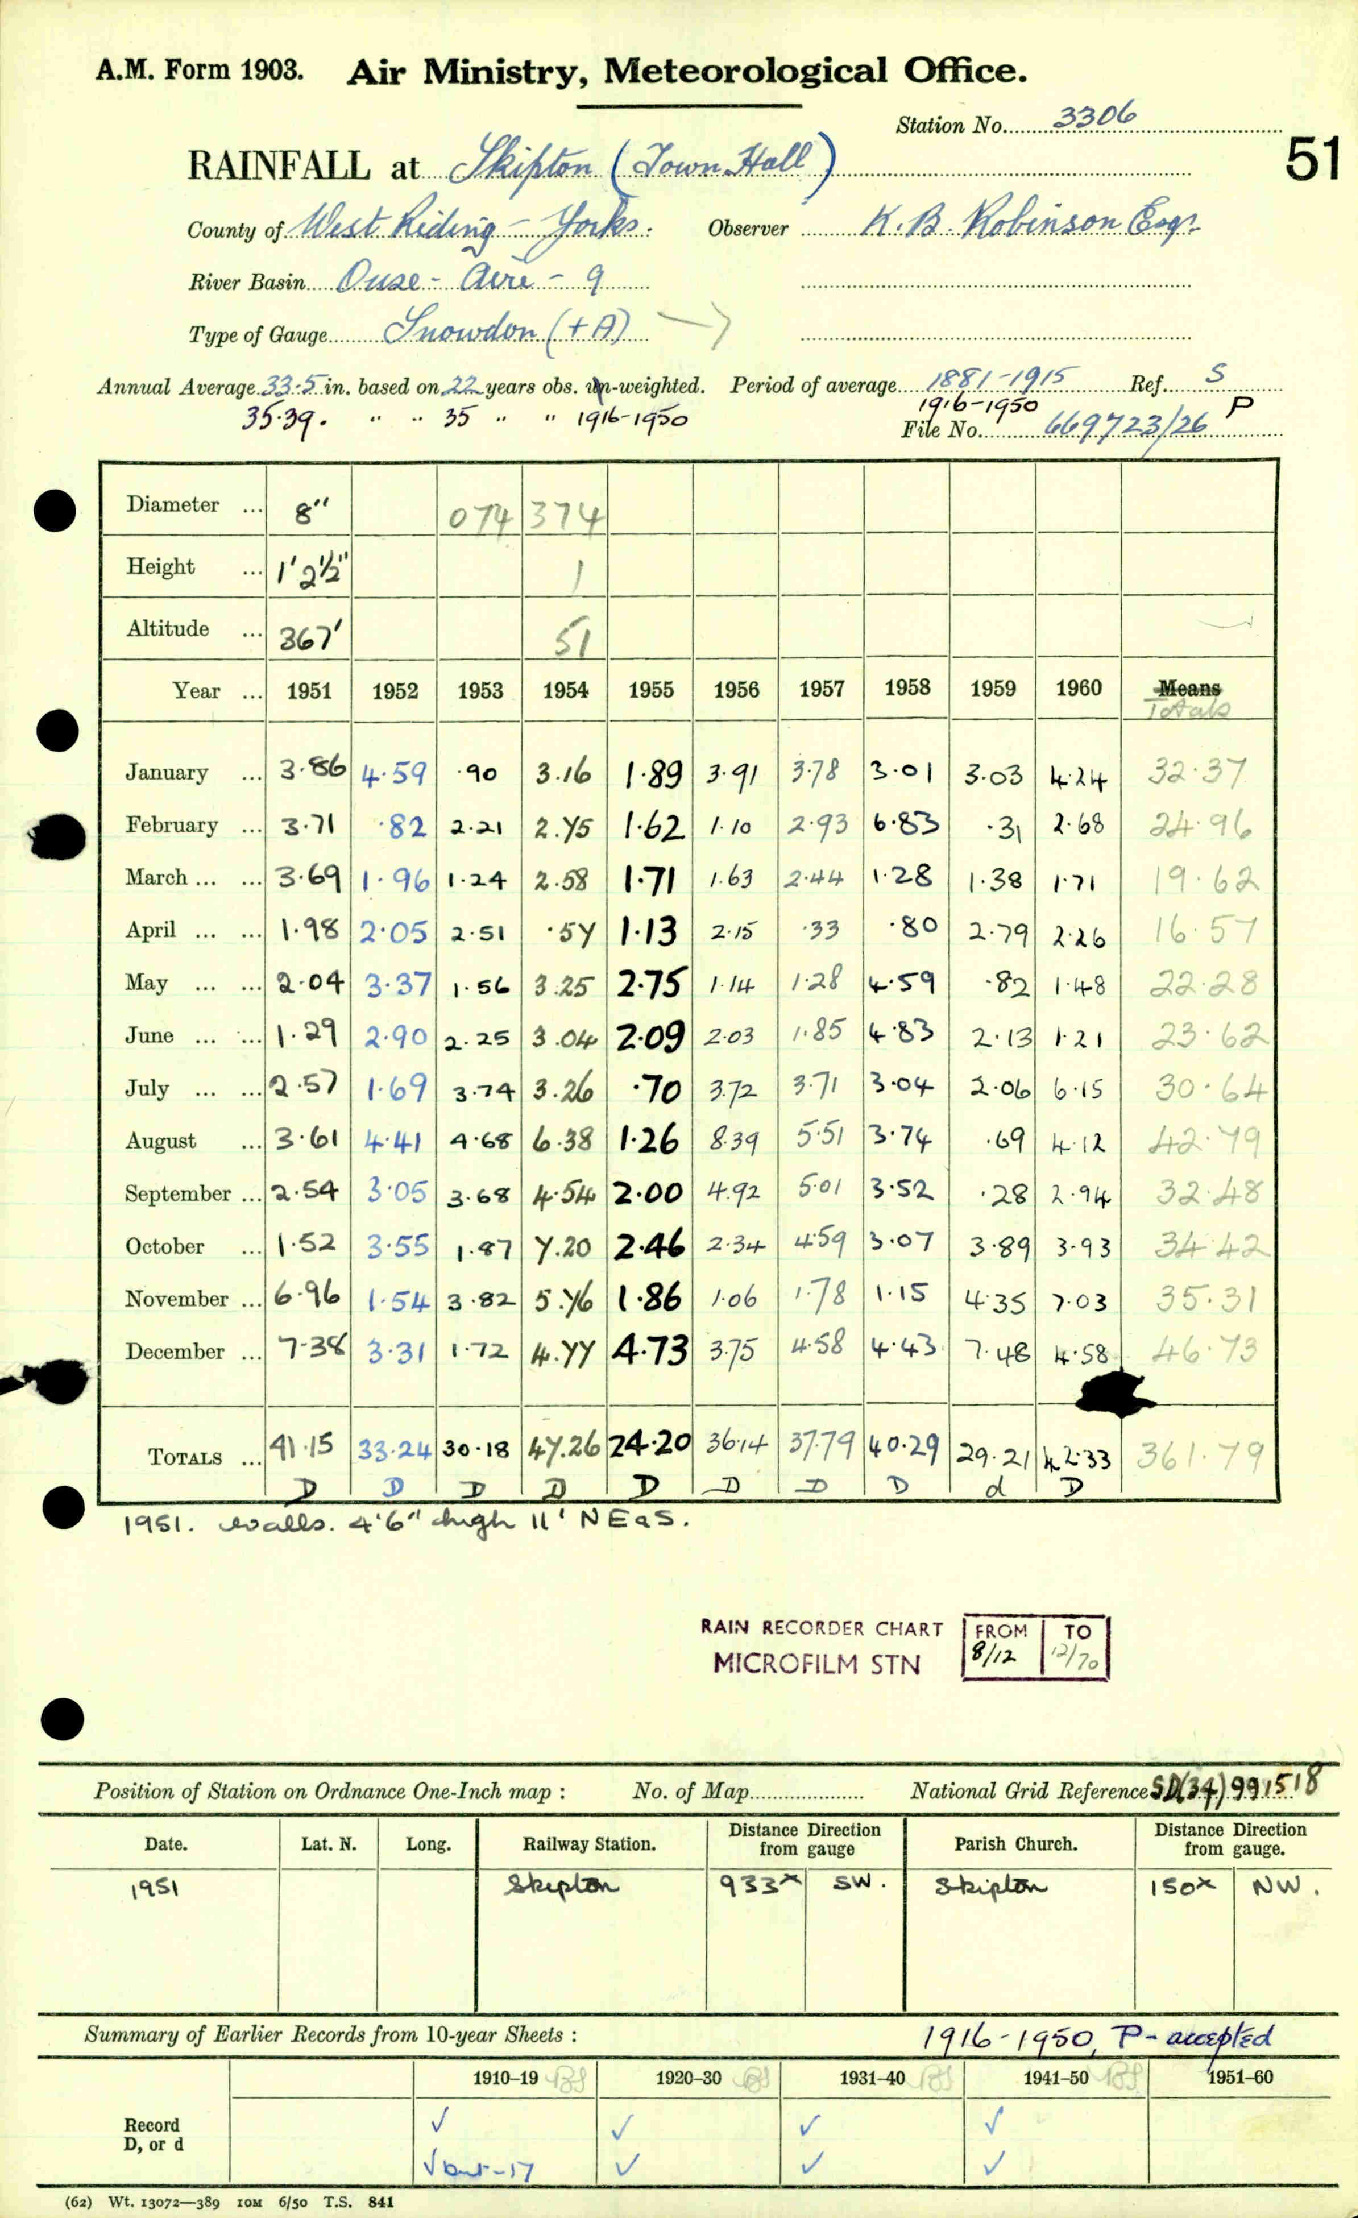 A.M. Form 1903. Air Ministry, Meteorological Office.
Station No. 3306
51
RAINFALL at Skipton (Town Hall)
County of West Riding - Yorks. Observer K. B. Robinson Esqr.
River Basin Ouse - Aire - 9
Type of Gauge Snowdon (+A) →
Annual Average 33.5 in. based on 22 years obs. un-weighted. Period of average 1881-1915 Ref. S
35.39. " " 35 " " 1916-1950 1916-1950 P
File No. 669723/26
Diameter ... 8" 074 374
Height ... 1'2½" 1
Altitude ... 367' 51
Year ... 1951 1952 1953 1954 1955 1956 1957 1958 1959 1960 Means
Totals
January ... 3.86 4.59 .90 3.16 1.89 3.91 3.78 3.01 3.03 4.24 32.37
February ... 3.71 .82 2.21 2.75 1.62 1.10 2.93 6.83 .31 2.68 24.96
March ... ... 3.69 1.96 1.24 2.58 1.71 1.63 2.44 1.28 1.38 1.71 19.62
April ... ... 1.98 2.05 2.51 .57 1.13 2.15 .33 .80 2.79 2.26 16.57
May ... ... 2.04 3.37 1.56 3.25 2.75 1.14 1.28 4.59 .82 1.48 22.28
June ... ... 1.29 2.90 2.25 3.04 2.09 2.03 1.85 4.83 2.13 1.21 23.62
July ... ... 2.57 1.69 3.74 3.26 .70 3.72 3.71 3.04 2.06 6.15 30.64
August ... 3.61 4.41 4.68 6.38 1.26 8.39 5.51 3.74 .69 4.12 42.79
September ... 2.54 3.05 3.68 4.54 2.00 4.92 5.01 3.52 .28 2.94 32.48
October ... 1.52 3.55 1.87 7.20 2.46 2.34 4.59 3.07 3.89 3.93 34.42
November ... 6.96 1.54 3.82 5.76 1.86 1.06 1.78 1.15 4.35 7.03 35.31
December ... 7.38 3.31 1.72 4.77 4.73 3.75 4.58 4.43 7.48 4.58 46.73
TOTALS ... 41.15 33.24 30.18 47.26 24.20 36.14 37.79 40.29 29.21 42.33 361.79
D D D D D D D D d D
1951. walls. 4'6" high 11' NE & S.
RAIN RECORDER CHART FROM TO
MICROFILM STN 8/12 12/70
Position of Station on Ordnance One-Inch map : No. of Map National Grid Reference SD(34) 991518
Date. Lat. N. Long. Railway Station. Distance Direction from gauge Parish Church. Distance Direction from gauge.
1951 Skipton 933x SW. Skipton 150x NW.
Summary of Earlier Records from 10-year Sheets : 1916-1950, P - accepted
1910–19 1920–30 1931–40 1941–50 1951–60
Record ✓ ✓ ✓ ✓
D, or d ✓ but -17 ✓ ✓ ✓
(62) Wt. 13072—389 10M 6/50 T.S. 841